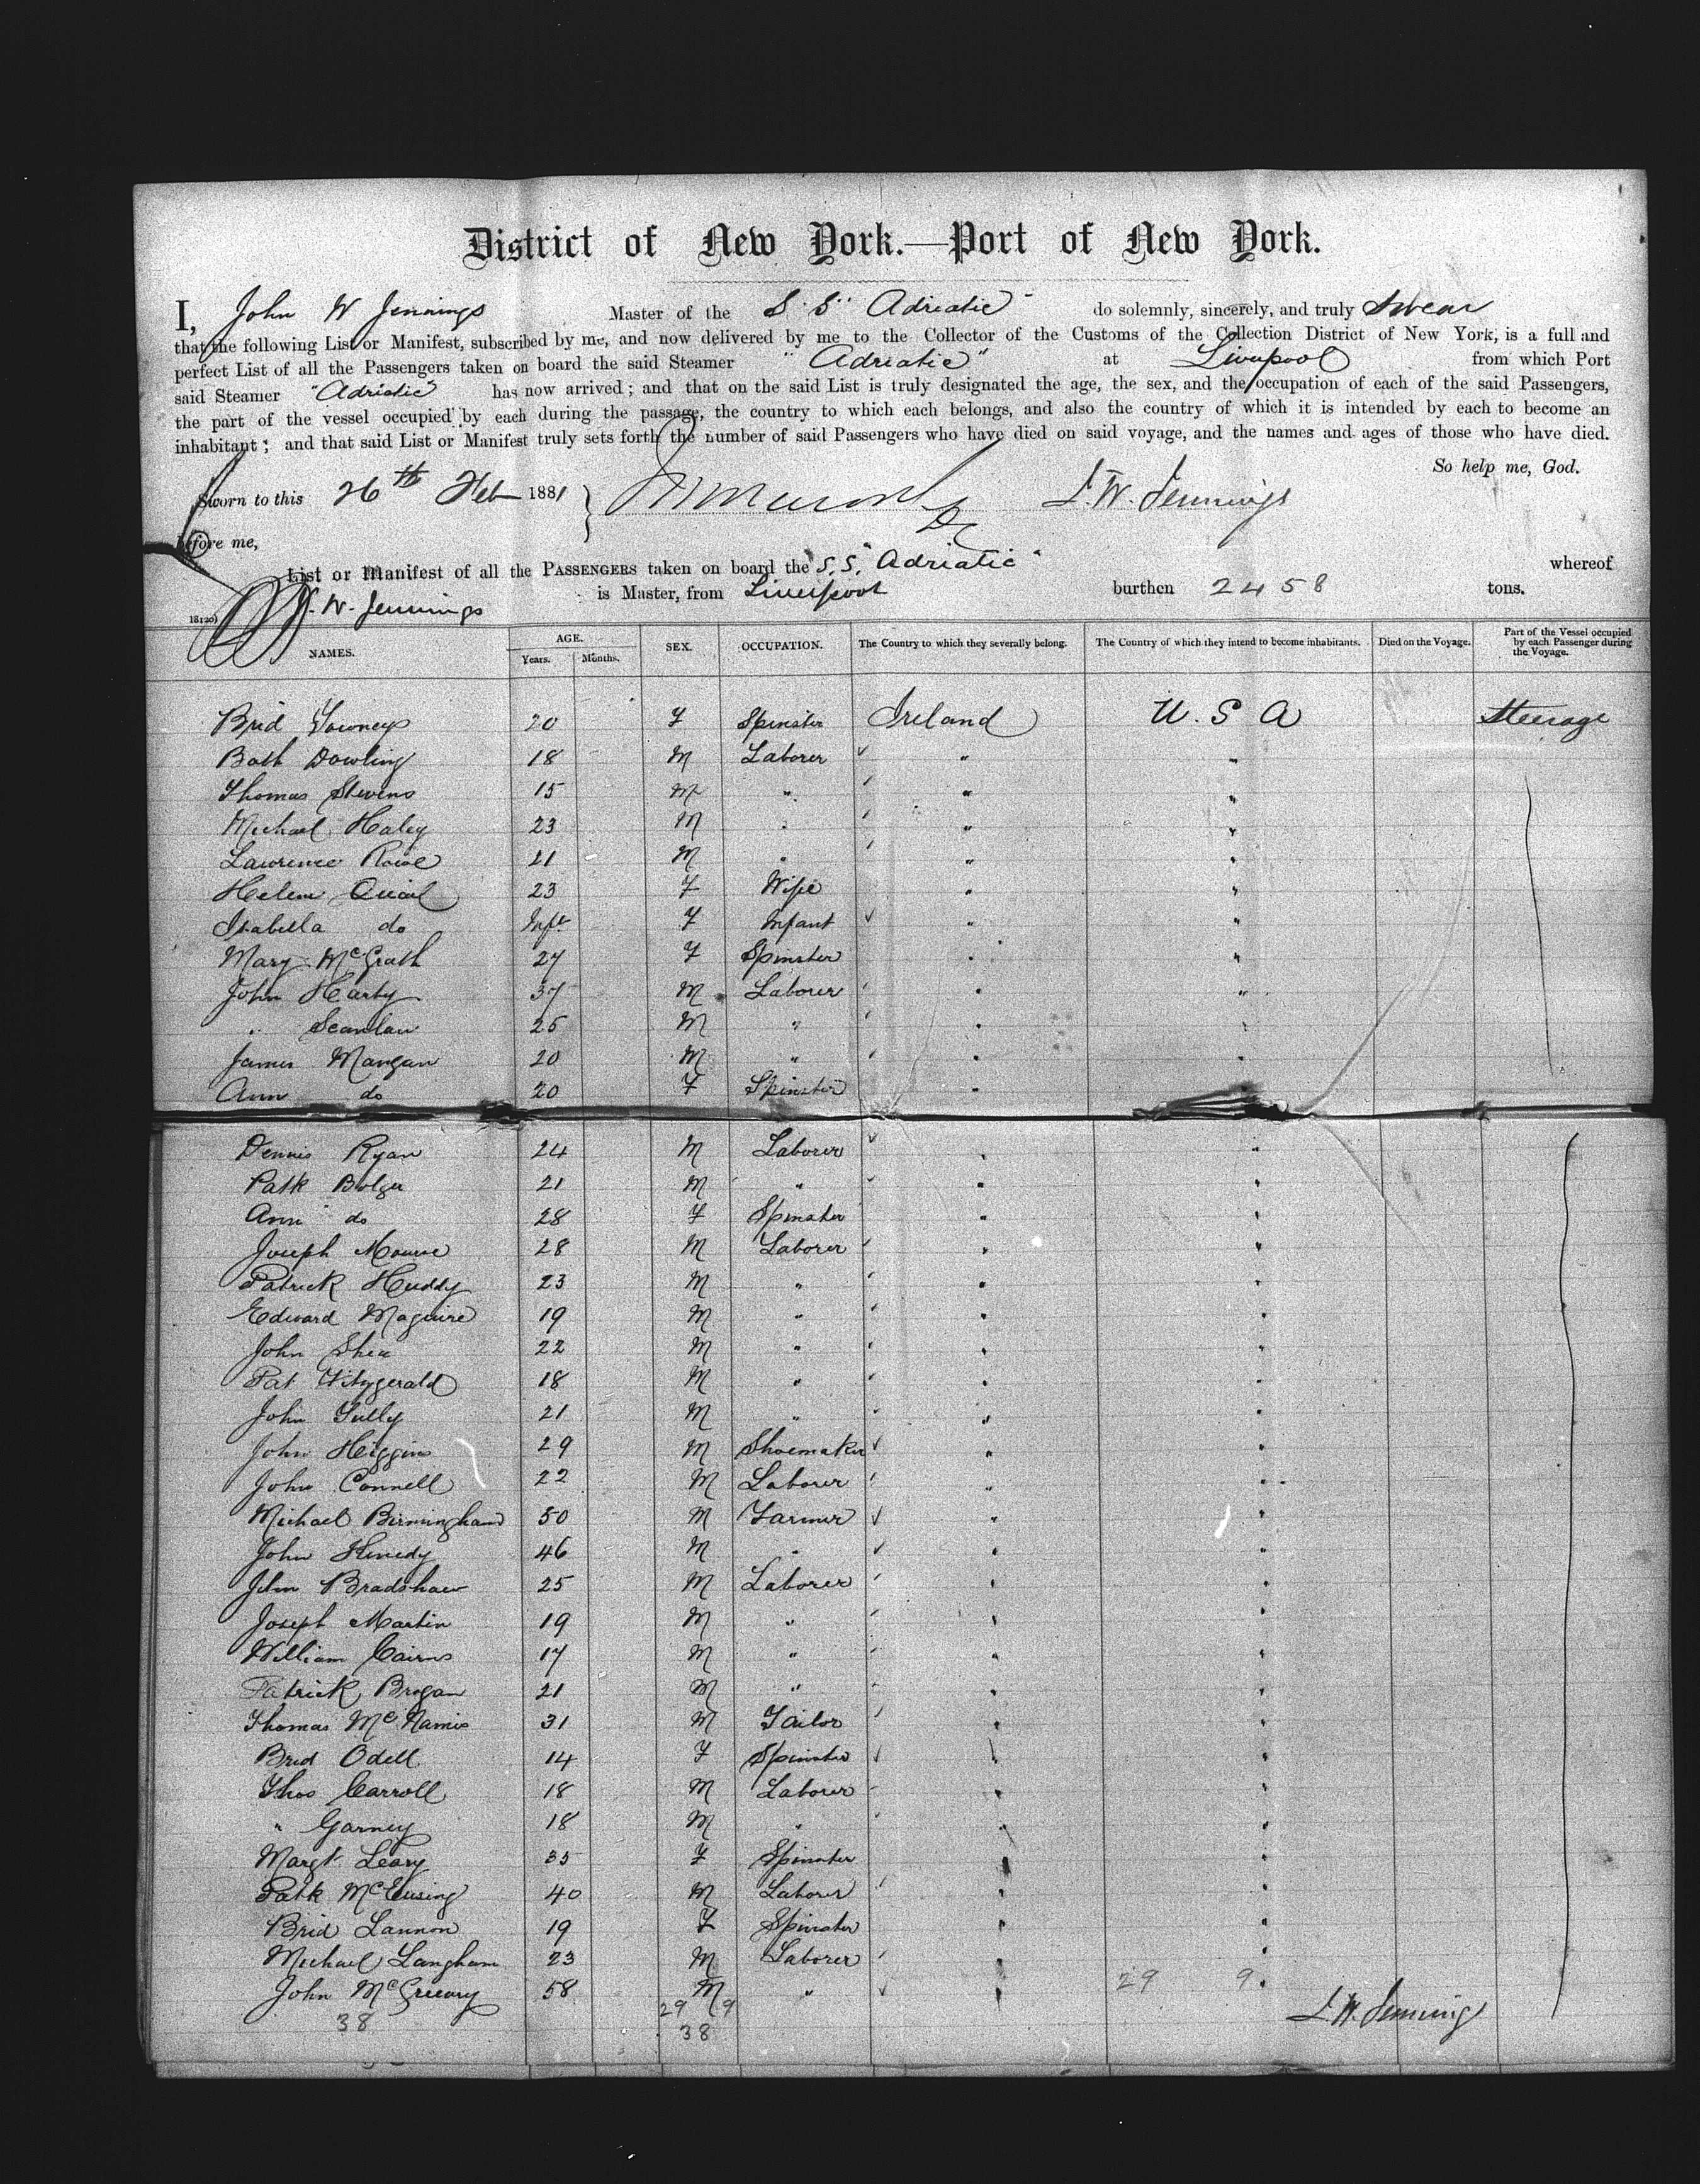 District of New York.—Port of New York.
I, John W Jennings Master of the S.S. "Adriatic" do solemnly, sincerely, and truly Swear
that the following List or Manifest, subscribed by me, and now delivered by me to the Collector of the Customs of the Collection District of New York, is a full and
perfect List of all the Passengers taken on board the said Steamer "Adriatic" at Liverpool from which Port
said Steamer "Adriatic" has now arrived; and that on the said List is truly designated the age, the sex, and the occupation of each of the said Passengers,
the part of the vessel occupied by each during the passage, the country to which each belongs, and also the country of which it is intended by each to become an
inhabitant; and that said List or Manifest truly sets forth the number of said Passengers who have died on said voyage, and the names and ages of those who have died.
So help me, God.
Sworn to this 26th Feb 1881 J. W. Jennings
before me,
List or Manifest of all the PASSENGERS taken on board the S.S. "Adriatic" whereof
J. W. Jennings is Master, from Liverpool burthen 2458 tons.
NAMES. AGE. Years. Months. SEX. OCCUPATION. The Country to which they severally belong. The Country of which they intend to become inhabitants. Died on the Voyage. Part of the Vessel occupied by each Passenger during the Voyage.
Brid 20 F Spinster Ireland U.S A Steerage
Bath Dowling 18 M Laborer " "
Thomas Stevens 15 M " " "
Michael Haley 23 M " " "
Lawrence Rowe 21 M " " "
Helen Quail 23 F Wife " "
Isabella do Inft F Infant " "
Mary McGrath 27 F Spinster " "
John Harty 37 M Laborer " "
" Scanlan 25 M " " "
James Mangan 20 M " " "
Ann do 20 F Spinster "
Dennis Ryan 24 M Laborer " "
Patk Bolger 21 M " " "
Ann do 28 F Spinster " "
Joseph 28 M Laborer " "
Patrick Huddy 23 M " " "
Edward Maguire 19 M " " "
John Shea 22 M " " "
Pat Fitzgerald 18 M " " "
John Tully 21 M " " "
John Higgins 29 M Shoemaker " "
John Connell 22 M Laborer " "
Michael Birmingham 50 M Farmer " "
John 46 M " " "
John Bradshaw 25 M Laborer " "
Joseph Martin 19 M " " "
William Cairns 17 M " " "
Patrick Brogan 21 M " " "
Thomas McNamis 31 M Tailor " "
Brid Odell 14 F Spinster " "
Thos Carroll 18 M Laborer " "
" Garney 18 M " " "
Margt Leary 35 F Spinster " "
Patk 40 M Laborer " "
Brid Lannon 19 F Spinster " "
Michael Langham 23 M Laborer " "
John McGreevy 58 M " " 29 9 "
38 29 9 J. W. Jennings
38